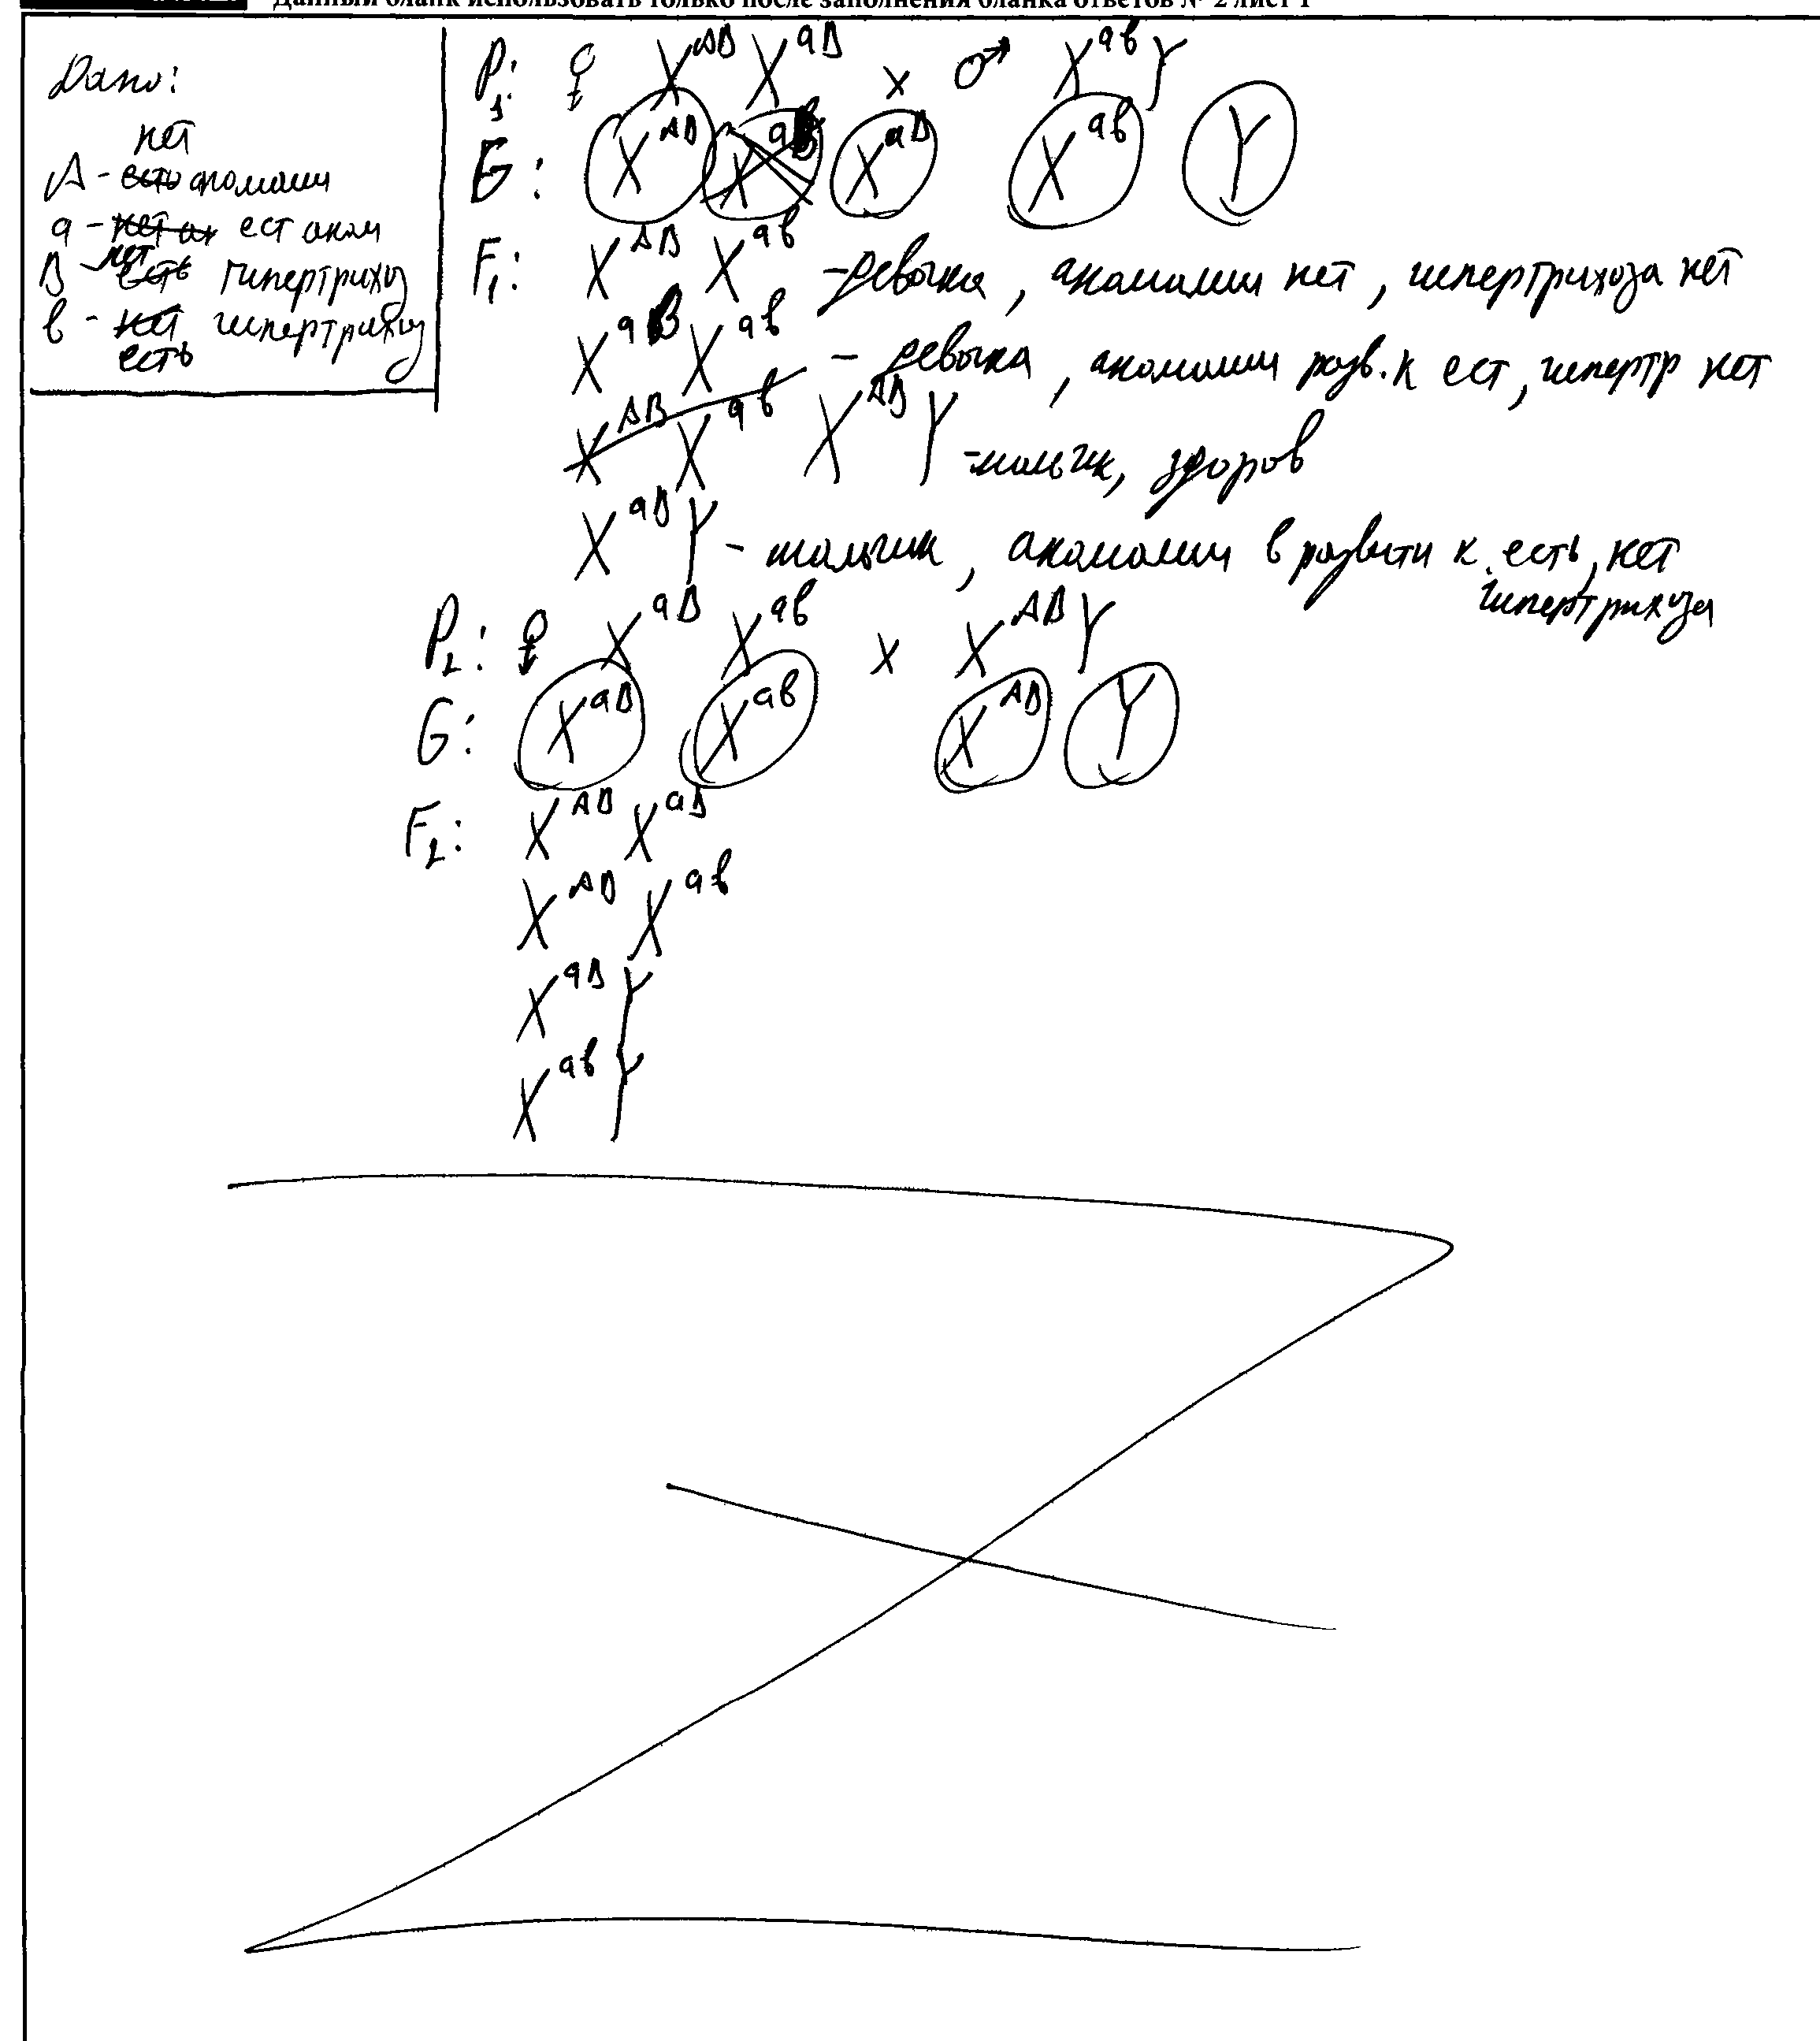 Данный бланк использовать только после заполнения бланка ответов № 2 лист 1
Дано:
нет
A - есть аномалии
a - нет ан ест аном
B - нет есть гипертрихоз
в - нет гипертрихоз
есть
P₁: ♀ X^AB X^aB x ♂ X^aв Y
G: X^AB X^aB X^aB X^aв Y
F₁: X^AB X^aв - девочка, аномалии нет, гипертрихоза нет
X^aB X^aв - девочка, аномалии разв. к ест, гипертр нет
X^AB X^aв X^AB Y - мальчик, здоров
X^aB Y - мальчик, аномалии в развити к. есть, нет
гипертрихоза
P₂: ♀ X^aB X^aв x X^AB Y
G: X^aB X^aв X^AB Y
F₂: X^AB X^aB
X^AB X^aв
X^aB Y
X^aв Y